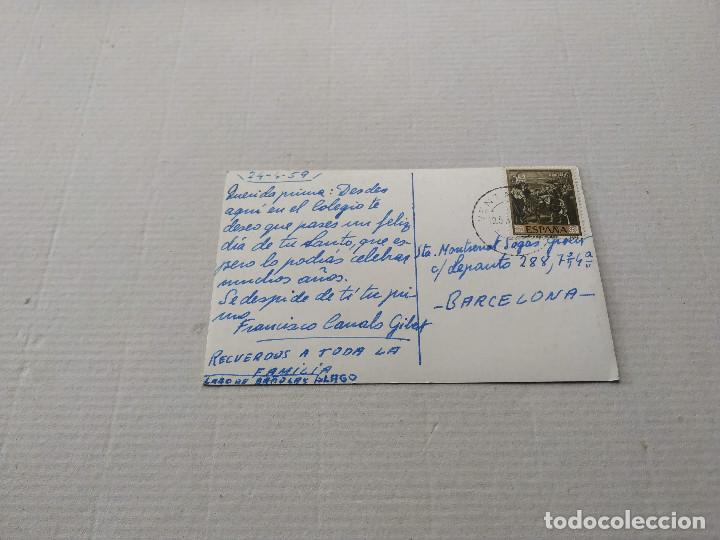 24-4-59
Querida prima: Desde
aquí en el Colegio te
deseo que pases un feliz
día de tu Santo, que es-
pero lo podrás celebrar
muchos años.
Se despide de tí tu pri
mo
Francisco Canals Gibert
RECUERDOS A TODA LA
FAMILIA
ESPAÑA
Sta. Montserrat Sogas
c/ Lepanto 288,
-BARCELONA-
todocoleccion.net